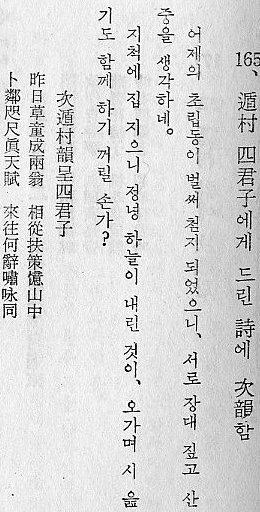 165、遁村 四君子에게 드린 詩에 次韻함
어제의 초립동이 벌써 첨지 되었으니、서로 장대 짚고 산
중을 생각하네。
지척에 집 지으니 정녕 하늘이 내린 것이、오가며 시 읊
기도 함께 하기 꺼릴 손가？
次遁村韻呈四君子
昨日草童成兩翁 相從扶策憶山中
卜鄰咫尺眞天賦 來往何辭嘯咏同